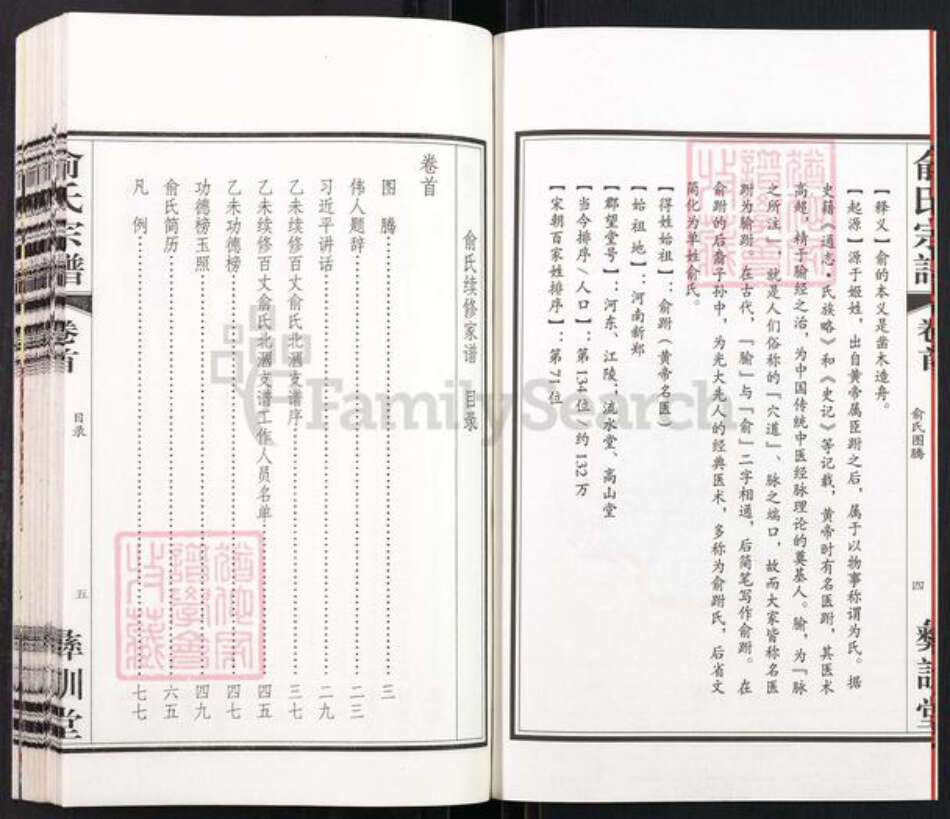 俞氏宗谱
卷首
俞氏图腾
四
彝训堂
【释义】俞的本义是凿木造舟。
【起源】源于姬姓，出自黄帝属臣跗之后，属于以物事称谓为氏。据
史籍《通志·氏族略》和《史记》等记载，黄帝时有名医跗，其医术
高超，精于腧经之治，为中国传统中医经脉理论的奠基人。腧，为『脉
之所注』，就是人们俗称的『穴道』、脉之端口，故而大家皆称名医
跗为腧跗。在古代，『腧』与『俞』二字相通，后简笔写作俞跗。在
俞跗的后裔子孙中，为光大先人的经典医术，多称为俞跗氏，后省文
简化为单姓俞氏。
【得姓始祖】：俞跗（黄帝名医）
【始祖地】：河南新郑
【郡望堂号】：河东、江陵；流水堂、高山堂
【当今排序/人口】：第134位/约132万
【宋朝百家姓排序】：第71位
俞氏续修家谱 目录
卷首
图腾……三
伟人题辞……二三
习近平讲话……二九
乙未续修百丈俞氏北涵支谱序……三七
乙未续修百丈俞氏北涵支谱工作人员名单……四五
乙未功德榜……四七
功德榜玉照……四九
俞氏简历……六五
凡例……七七
俞氏宗谱
卷首
目录
五
彝训堂
FamilySearch